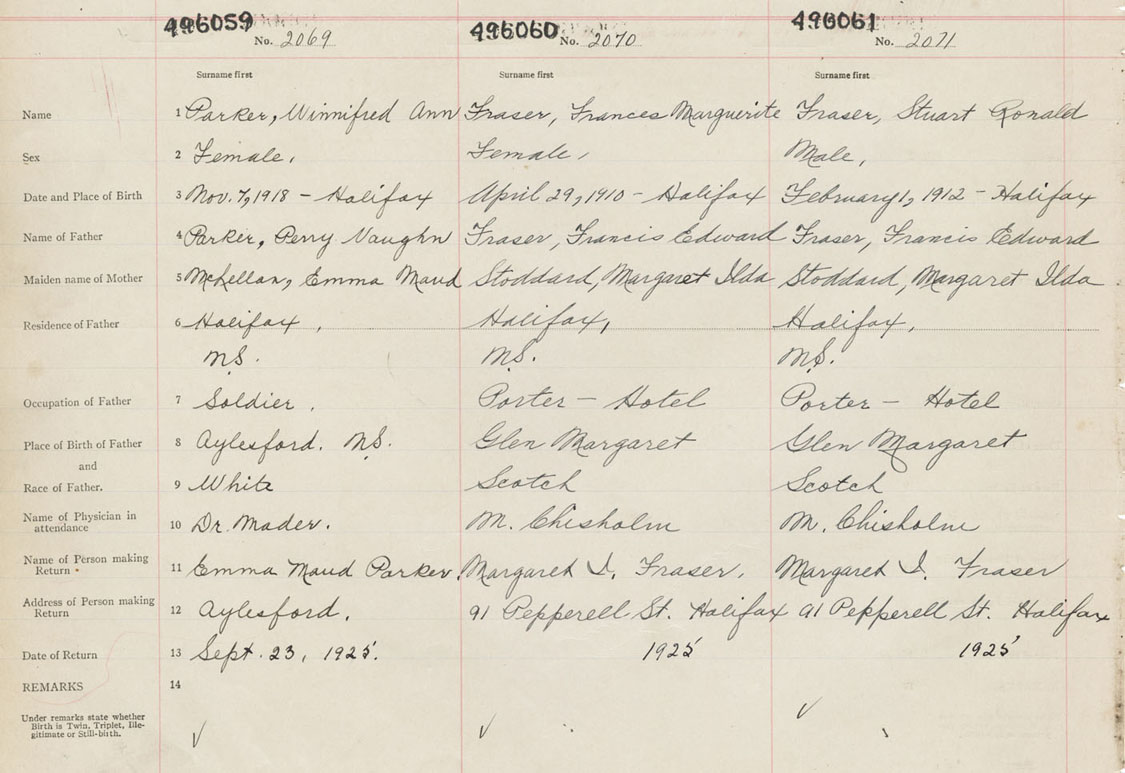 496059 496060 496061
No. 2069 No. 2070 No. 2071
Surname first Surname first Surname first
Name 1 Parker, Winnifred Ann Fraser, Frances Marguerite Fraser, Stuart Ronald
Sex 2 Female, Female, Male,
Date and Place of Birth 3 Nov. 7, 1918 - Halifax April 29, 1910 - Halifax February 1, 1912 - Halifax
Name of Father 4 Parker, Perry Vaughn Fraser, Francis Edward Fraser, Francis Edward
Maiden name of Mother 5 McKellan, Emma Maud Stoddard, Margaret Ilda Stoddard, Margaret Ilda
Residence of Father 6 Halifax, Halifax, Halifax,
N.S. N.S. N.S.
Occupation of Father 7 Soldier. Porter - Hotel Porter - Hotel
Place of Birth of Father 8 Aylesford. N.S. Glen Margaret Glen Margaret
and
Race of Father. 9 White Scotch Scotch
Name of Physician in
attendance 10 Dr. Mader. M. Chisholm M. Chisholm
Name of Person making
Return 11 Emma Maud Parker. Margaret I. Fraser. Margaret I. Fraser
Address of Person making
Return 12 Aylesford. 91 Pepperell St. Halifax 91 Pepperell St. Halifax
Date of Return 13 Sept. 23, 1925. 1925 1925
REMARKS 14
Under remarks state whether
Birth is Twin, Triplet, Ille-
gitimate or Still-birth.